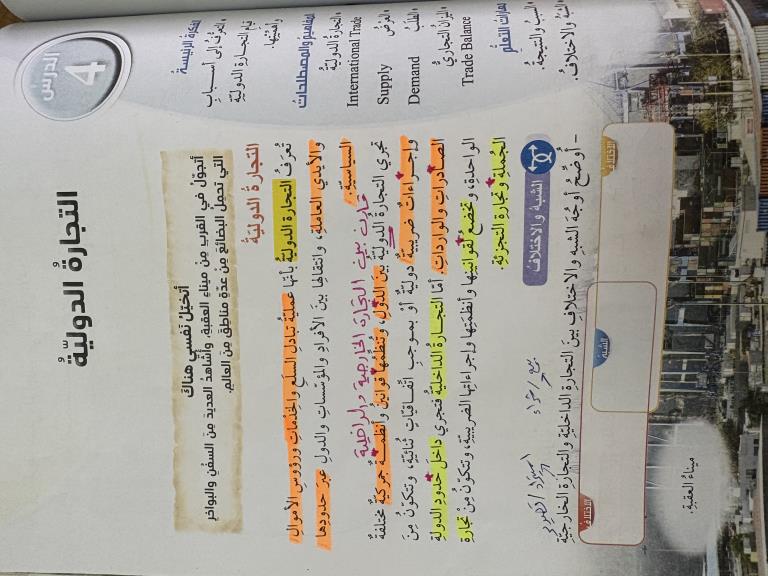 الدرس
4
التجارةُ الدوليّةُ
الفكرةُ الرئيسةُ
• التعرُّفُ إلى أسبابِ
قيامِ التجارةِ الدوليّةِ
وأهميّتِها.
المفاهيمُ والمصطلحاتُ
• التجارةُ الدوليّةُ
International Trade
• العَرْضُ
Supply
• الطلبُ
Demand
• الميزانُ التجاريُّ
Trade Balance
مهاراتُ التعلُّمِ
• السببُ والنتيجةُ.
• الشبهُ والاختلافُ.
أتخيّلُ نَفسي هناكَ
أتجوّلُ في القربِ مِن ميناءِ العقبةِ، وأشاهدُ العديدَ مِن السفنِ والبواخرِ
التي تحملُ البضائعَ مِن عدّةِ مناطقَ مِنَ العالمِ.
التجارةُ الدوليّةُ
تُعرَفُ التجارةُ الدوليّةُ بأنّها عمليّةُ تبادلِ السلعِ والخِدْماتِ ورؤوسِ الأموالِ
والأيدي العاملةِ، وانتقالِها بينَ الأفرادِ والمؤسّساتِ والدولِ عبرَ حدودِها
السياسيّةِ.
قارن بين التجارة الخارجية والداخلية
تجري التجارةُ الدوليّةُ بينَ الدولِ، وتُنظّمُها قوانينُ وأنظمةٌ جمركيّةٌ مختلفةٌ
وإجراءاتٌ ضريبيّةٌ دوليّةٌ أو بموجبِ اتّفاقيّاتٍ ثنائيّةٍ، وتتكوّنُ مِنَ
الصادراتِ والوارداتِ. أمّا التجارةُ الداخليّةُ فتجري داخلَ حدودِ الدولةِ
الواحدةِ، وتخضعُ لقوانينِها وأنظمتِها وإجراءاتِها الضريبيّةِ، وتتكوّنُ مِنْ تجارةِ
الجُملةِ وتجارةِ التجزئةِ.
الشبهُ والاختلافُ
بيع / شراء
استيراد / تصدير
- أوضّحُ أوجُهَ الشبهِ والاختلافِ بينَ التجارةِ الداخليّةِ والتجارةِ الخارجيّةِ
الاختلافُ
الشبهُ
الاختلافُ
ميناءُ العقبةِ.